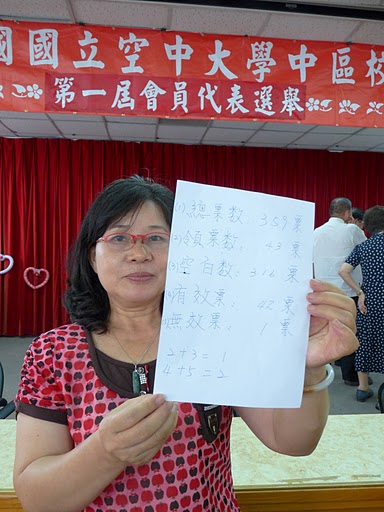 國國立空中大學中區校
第一屆會員代表選舉
(1)總票數：359票
(2)領票數：43票
(3)空白數：316票
(4)有效票：42票
(5)無效票：1票
2+3=1
4+5=2